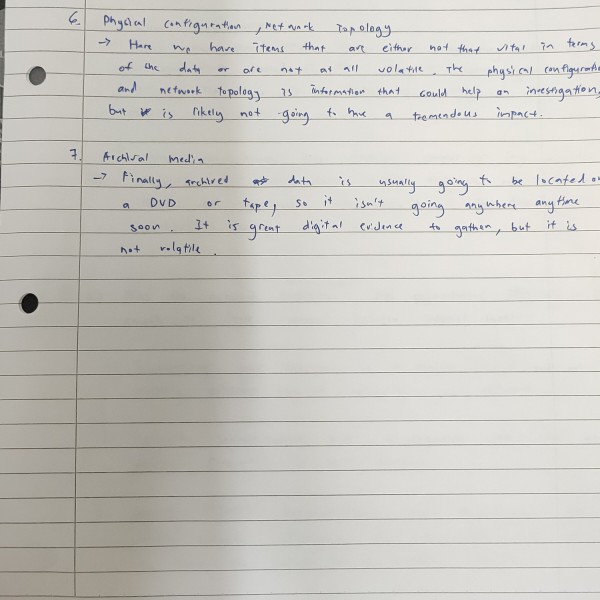 6. Physical configuration, Network Topology
→ Here we have items that are either not that vital in terms
of the data or are not at all volatile. The physical configuratio
and network topology is information that could help an investigation,
but is likely not going to have a tremendous impact.
7. Archival Media
→ Finally, archived data is usually going to be located o
a DVD or tape, so it isn't going anywhere anytime
soon. It is great digital evidence to gather, but it is
not volatile.